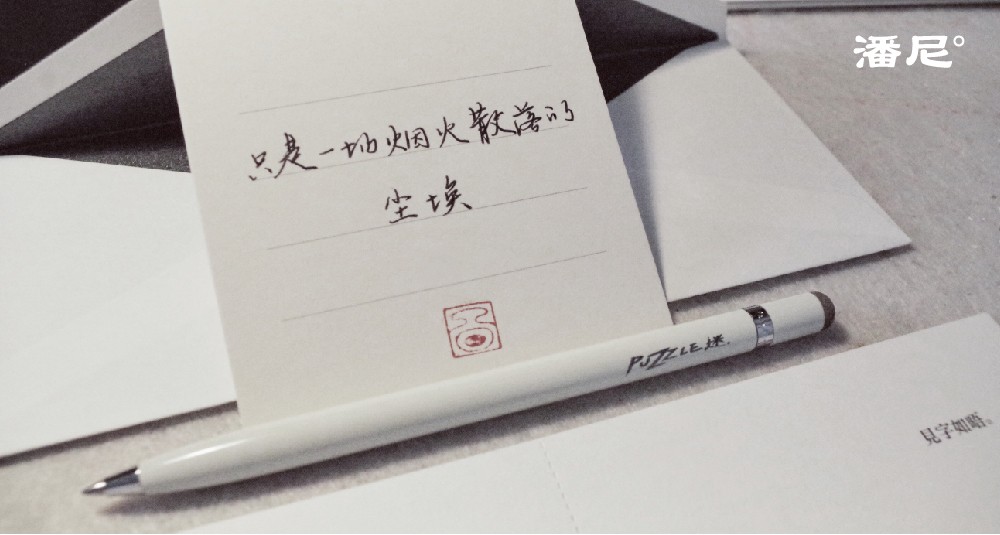 潘尼°
只是一场烟火散落的
尘埃
PUZZLE迷.
見字如晤。